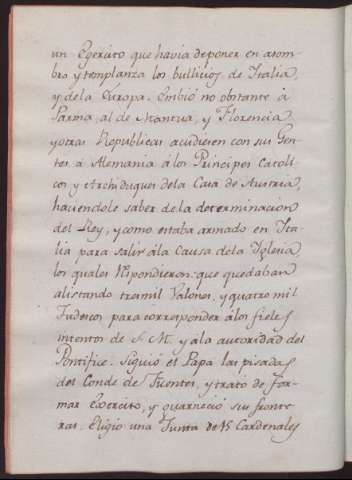 un Egercito que havia deponer en asom-
bro y templanza los bullicios de Italia,
y dela Europa. Embió no obstante à
Parma al de Mantua, y Florencia
y otras Republicas acudiesen con su Gen-
te à Alemania álos Principes Catoli-
cos y Archiduques dela Casa de Austria,
haciendole saber dela determinacion
del Rey, y como estaba armado en Ita-
lia para salir ála Causa dela Yglesia,
los quales respondieron: que quedaban
alistando tresmil Valones, y quatro mil
Tudescos para corresponder álos fieles
intentos de S. M. y ála autoridad del
Pontifice. Siguió el Papa las pisadas
del Conde de Fuentes, y trato de for-
mar Exercito, y guarneció sus fronte-
ras. Eligio una Junta de 15 Cardenales